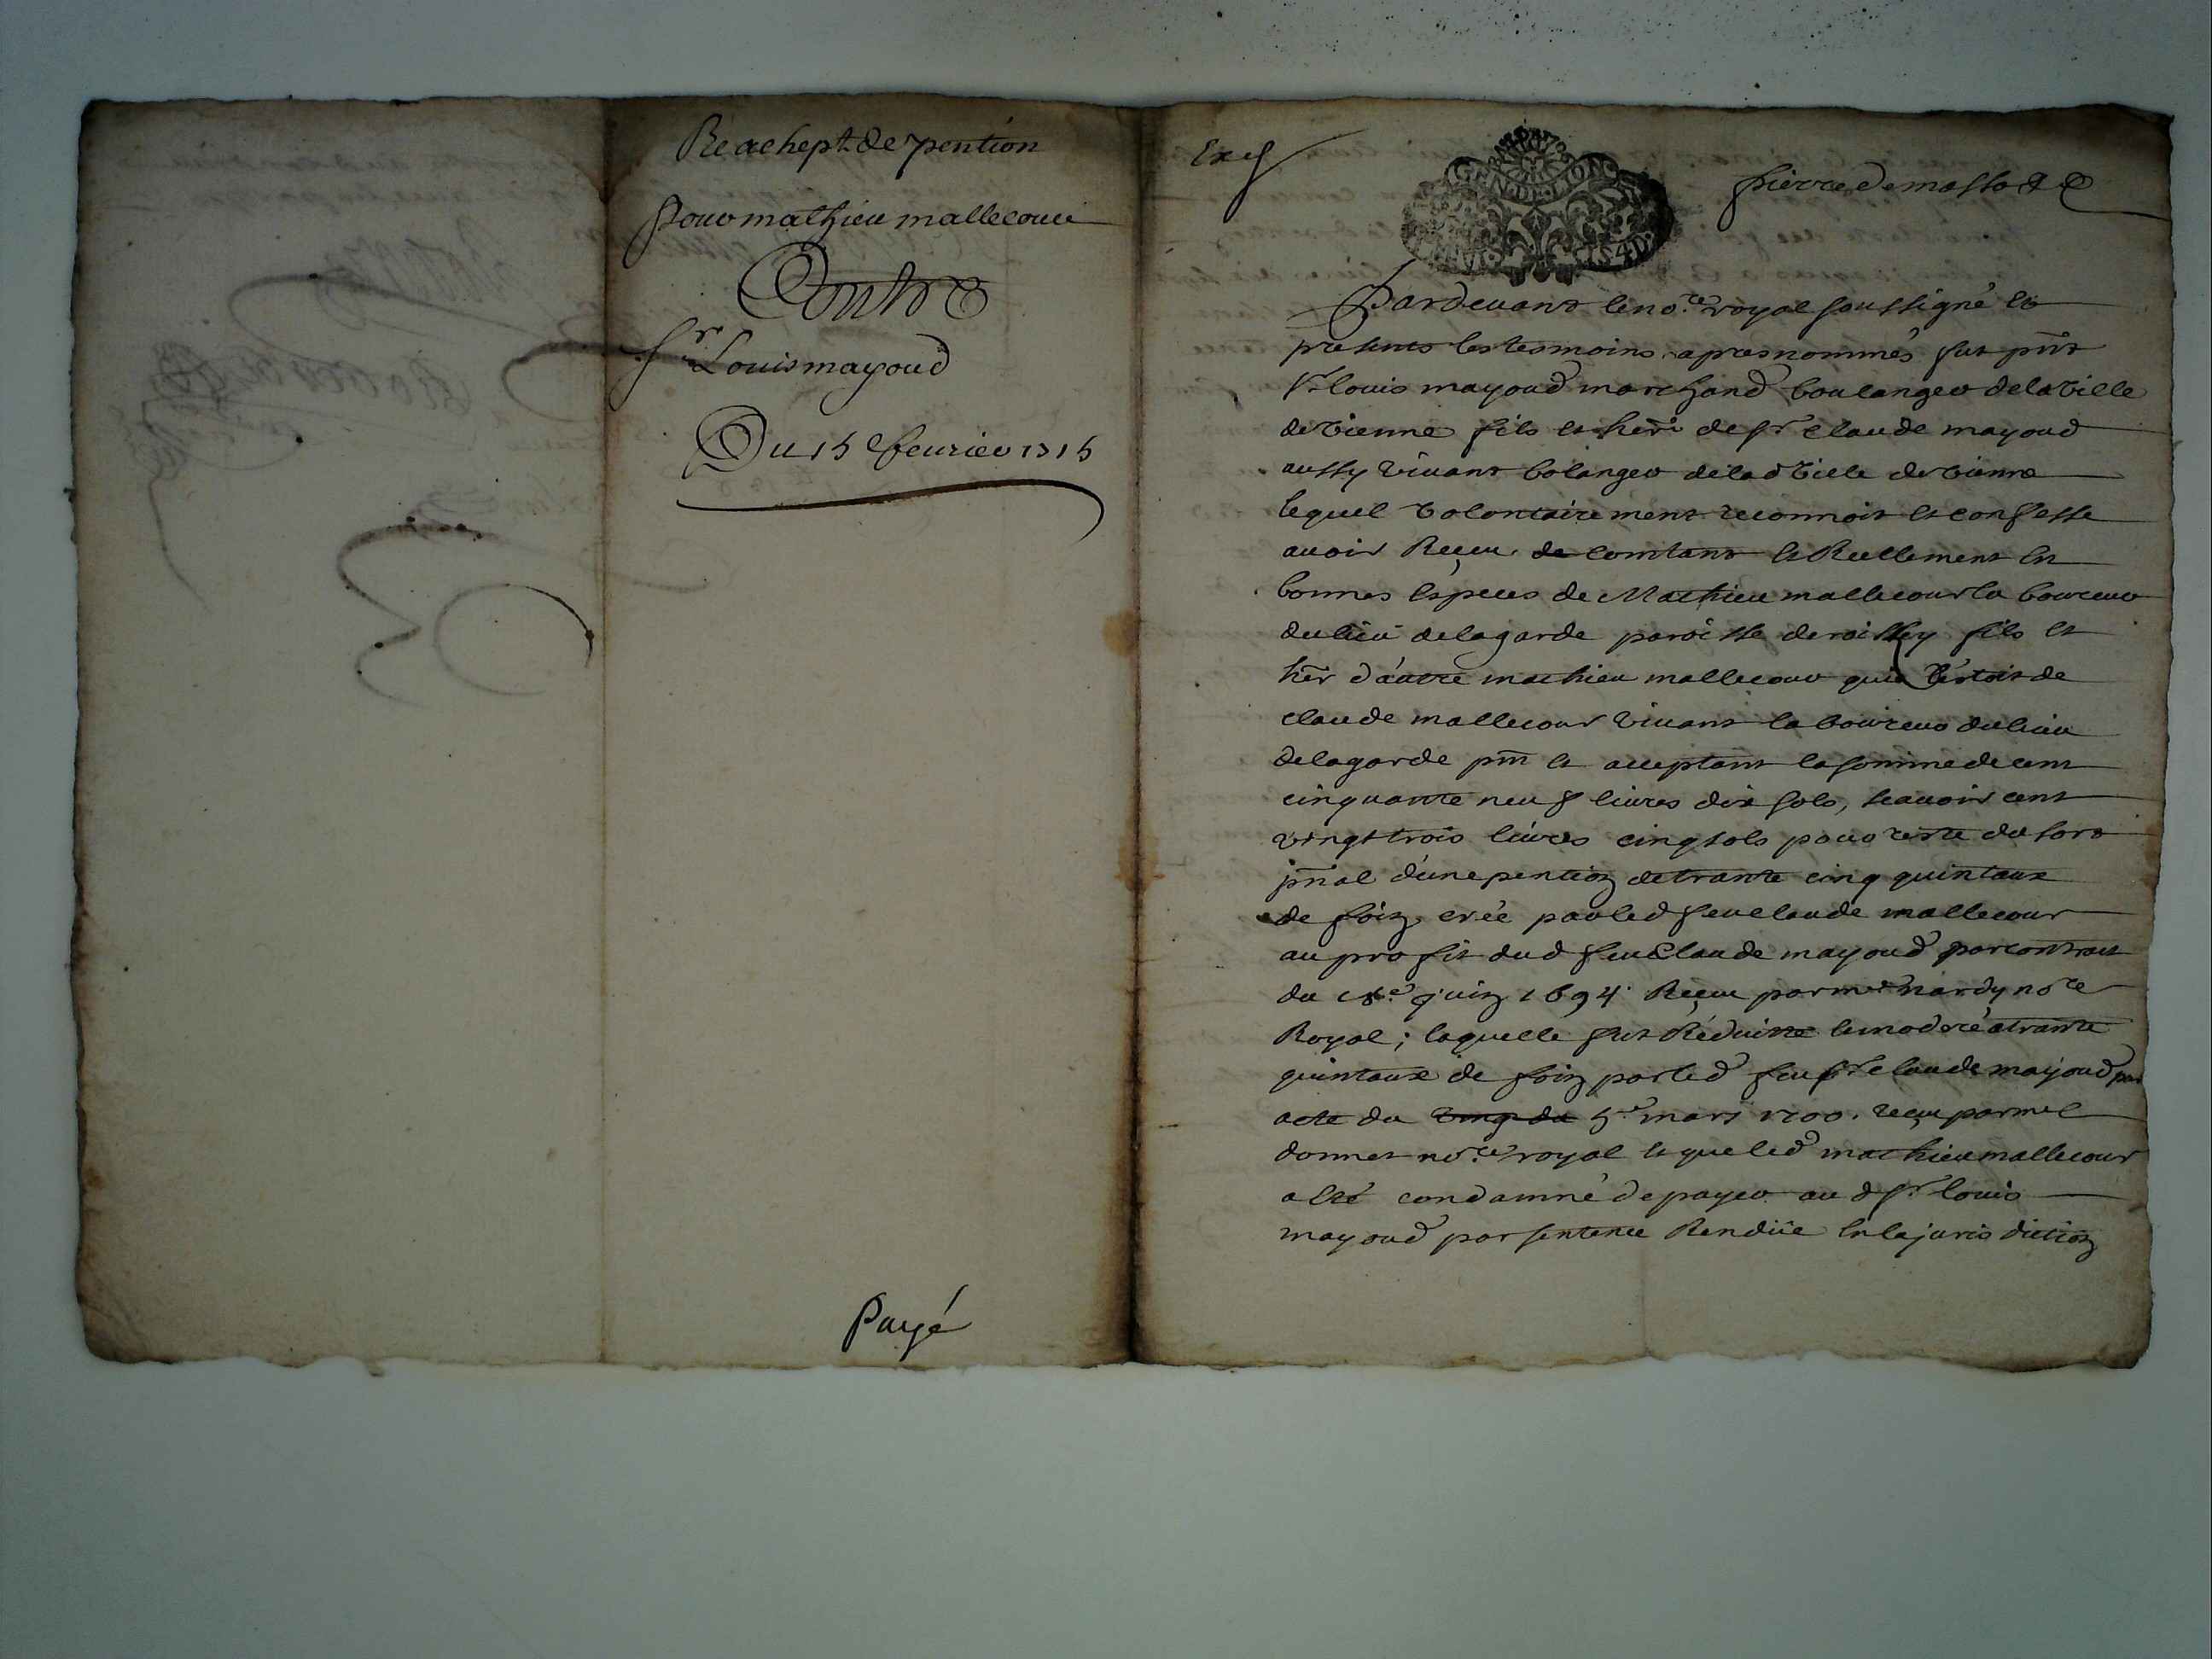 Reachept de pention
pour mathieu mallecour
Contre
Sr Louis mayoud
Du 15 feurier 1715
Payé
Exg
pierre de masso
GEN DE LION
Pardeuant le no.re royal soussigné et
presents les tesmoins apres nommés fut pnt
Sr louis mayoud marchand boulanger de la Ville
de Vienne fils et heri de Sr Claude mayoud
aussy viuant bolanger de lad Ville de vienne
lequel volontairement reconnoit et confesse
auoir Reçeu de comtant et Reellement en
bonnes especes de Mathieu mallecour laboureur
du lieu de lagarde paroisse de roissey fils et
her d'autre mathieu mallecour qui l'estoit de
claude mallecour viuant laboureur du lieu
de lagarde pnt et acceptant la somme de cent
cinquante neuf liures dix sols, scauoir cent
vingt trois liures cinq sols pour reste du sort
pnal d'une pention de trante cinq quintaux
de foin crée par led feu claude mallecour
au profit dud feu Claude mayoud par contrait
du juin 1694 Reçeu par me nardy no.re
Royal; laquelle fut Réduitte et moderé a trante
quintaux de foin par led feu sr claude mayoud par
acte du 5e mars 1700. reçeu par me
donnet no.re royal et que led mathieu mallecour
a esté condamné de payer au d sr louis
mayoud par sentence Rendüe en la jurisdiction